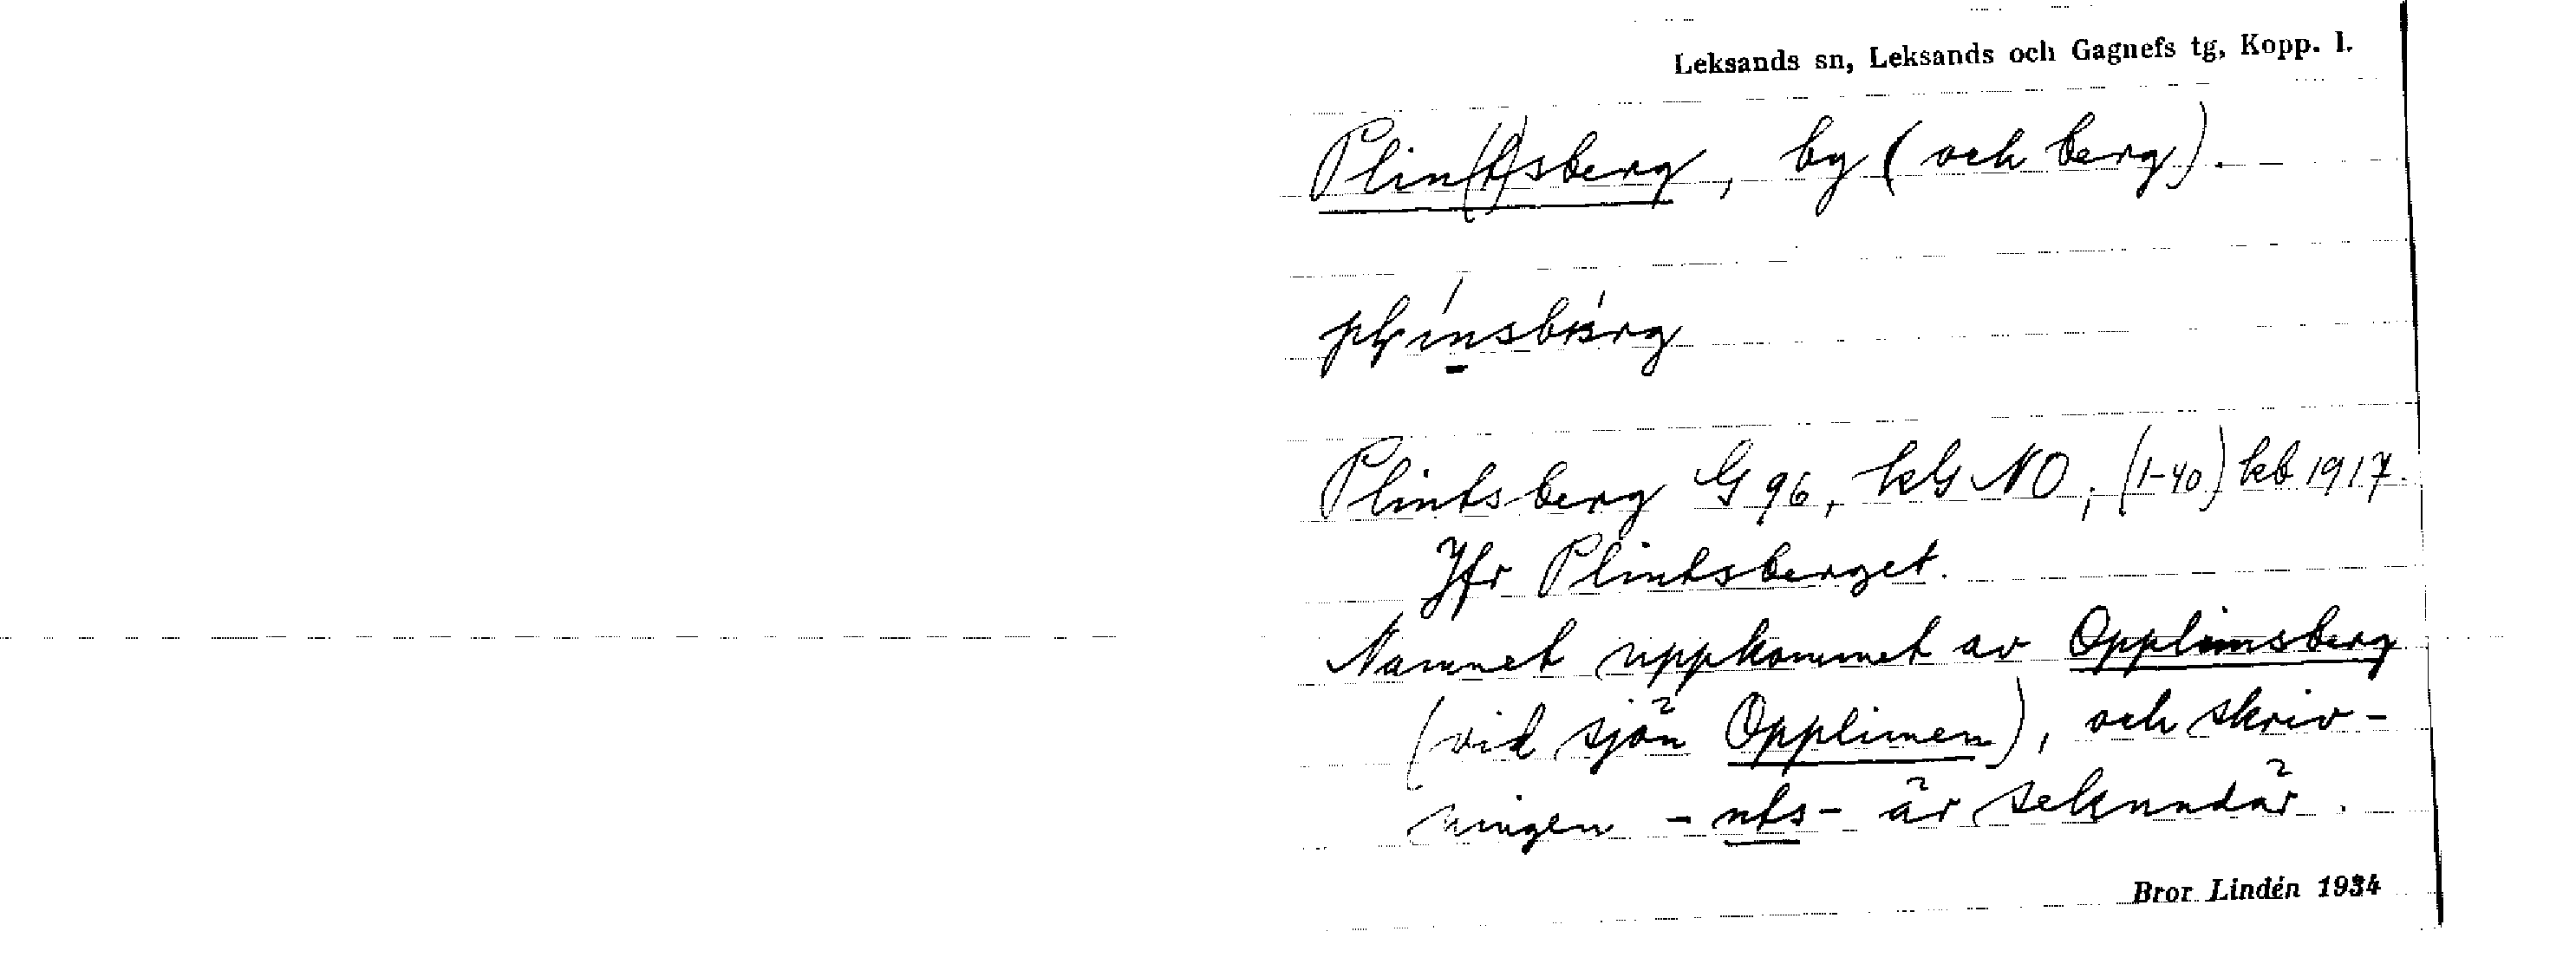 Leksands sn, Leksands och Gagnefs tg, Kopp. l.
Plin(t)sberg, by (och berg).
Plintsberg G 96, kG NO; (1-40) kb 1917.
Jfr Plintsberget.
Namnet uppkommet av Opplimsberg
(vid sjön Opplimen), och skriv-
ningen -nts- är sekundär.
Bror Lindén 1934